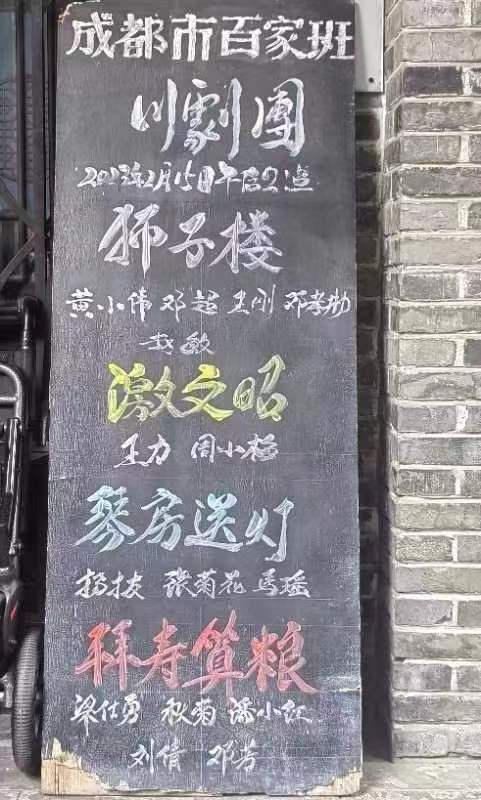 成都市百家班
川劇團
2023年2月15日午后2造
狮子楼
黄小伟 邓超 王刚 邓孝勋
敏
激文昭
王力 周小梅
琴房送灯
张菊花 馬瑶
拜寿算粮
梁仕勇 秋菊 潘小红
刘倩 邓芳